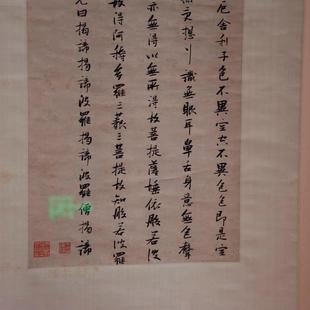 厄舍利子色不異空空不異色色即是空
想行識無眼耳鼻舌身意無色聲
亦無得以無所得故菩提薩埵依般若波
故得阿耨多羅三藐三菩提故知般若波羅
曰揭諦揭諦波羅揭諦波羅僧揭諦